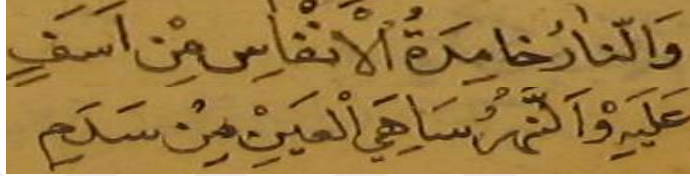 وَالنَّارُ خَامِدَةُ الْاَنْفَاسِ مِنْ اَسَفٍ
عَلَيْهِ وَالنَّهْرُ سَاهِي الْعَيْنِ مِنْ سَدَمِ